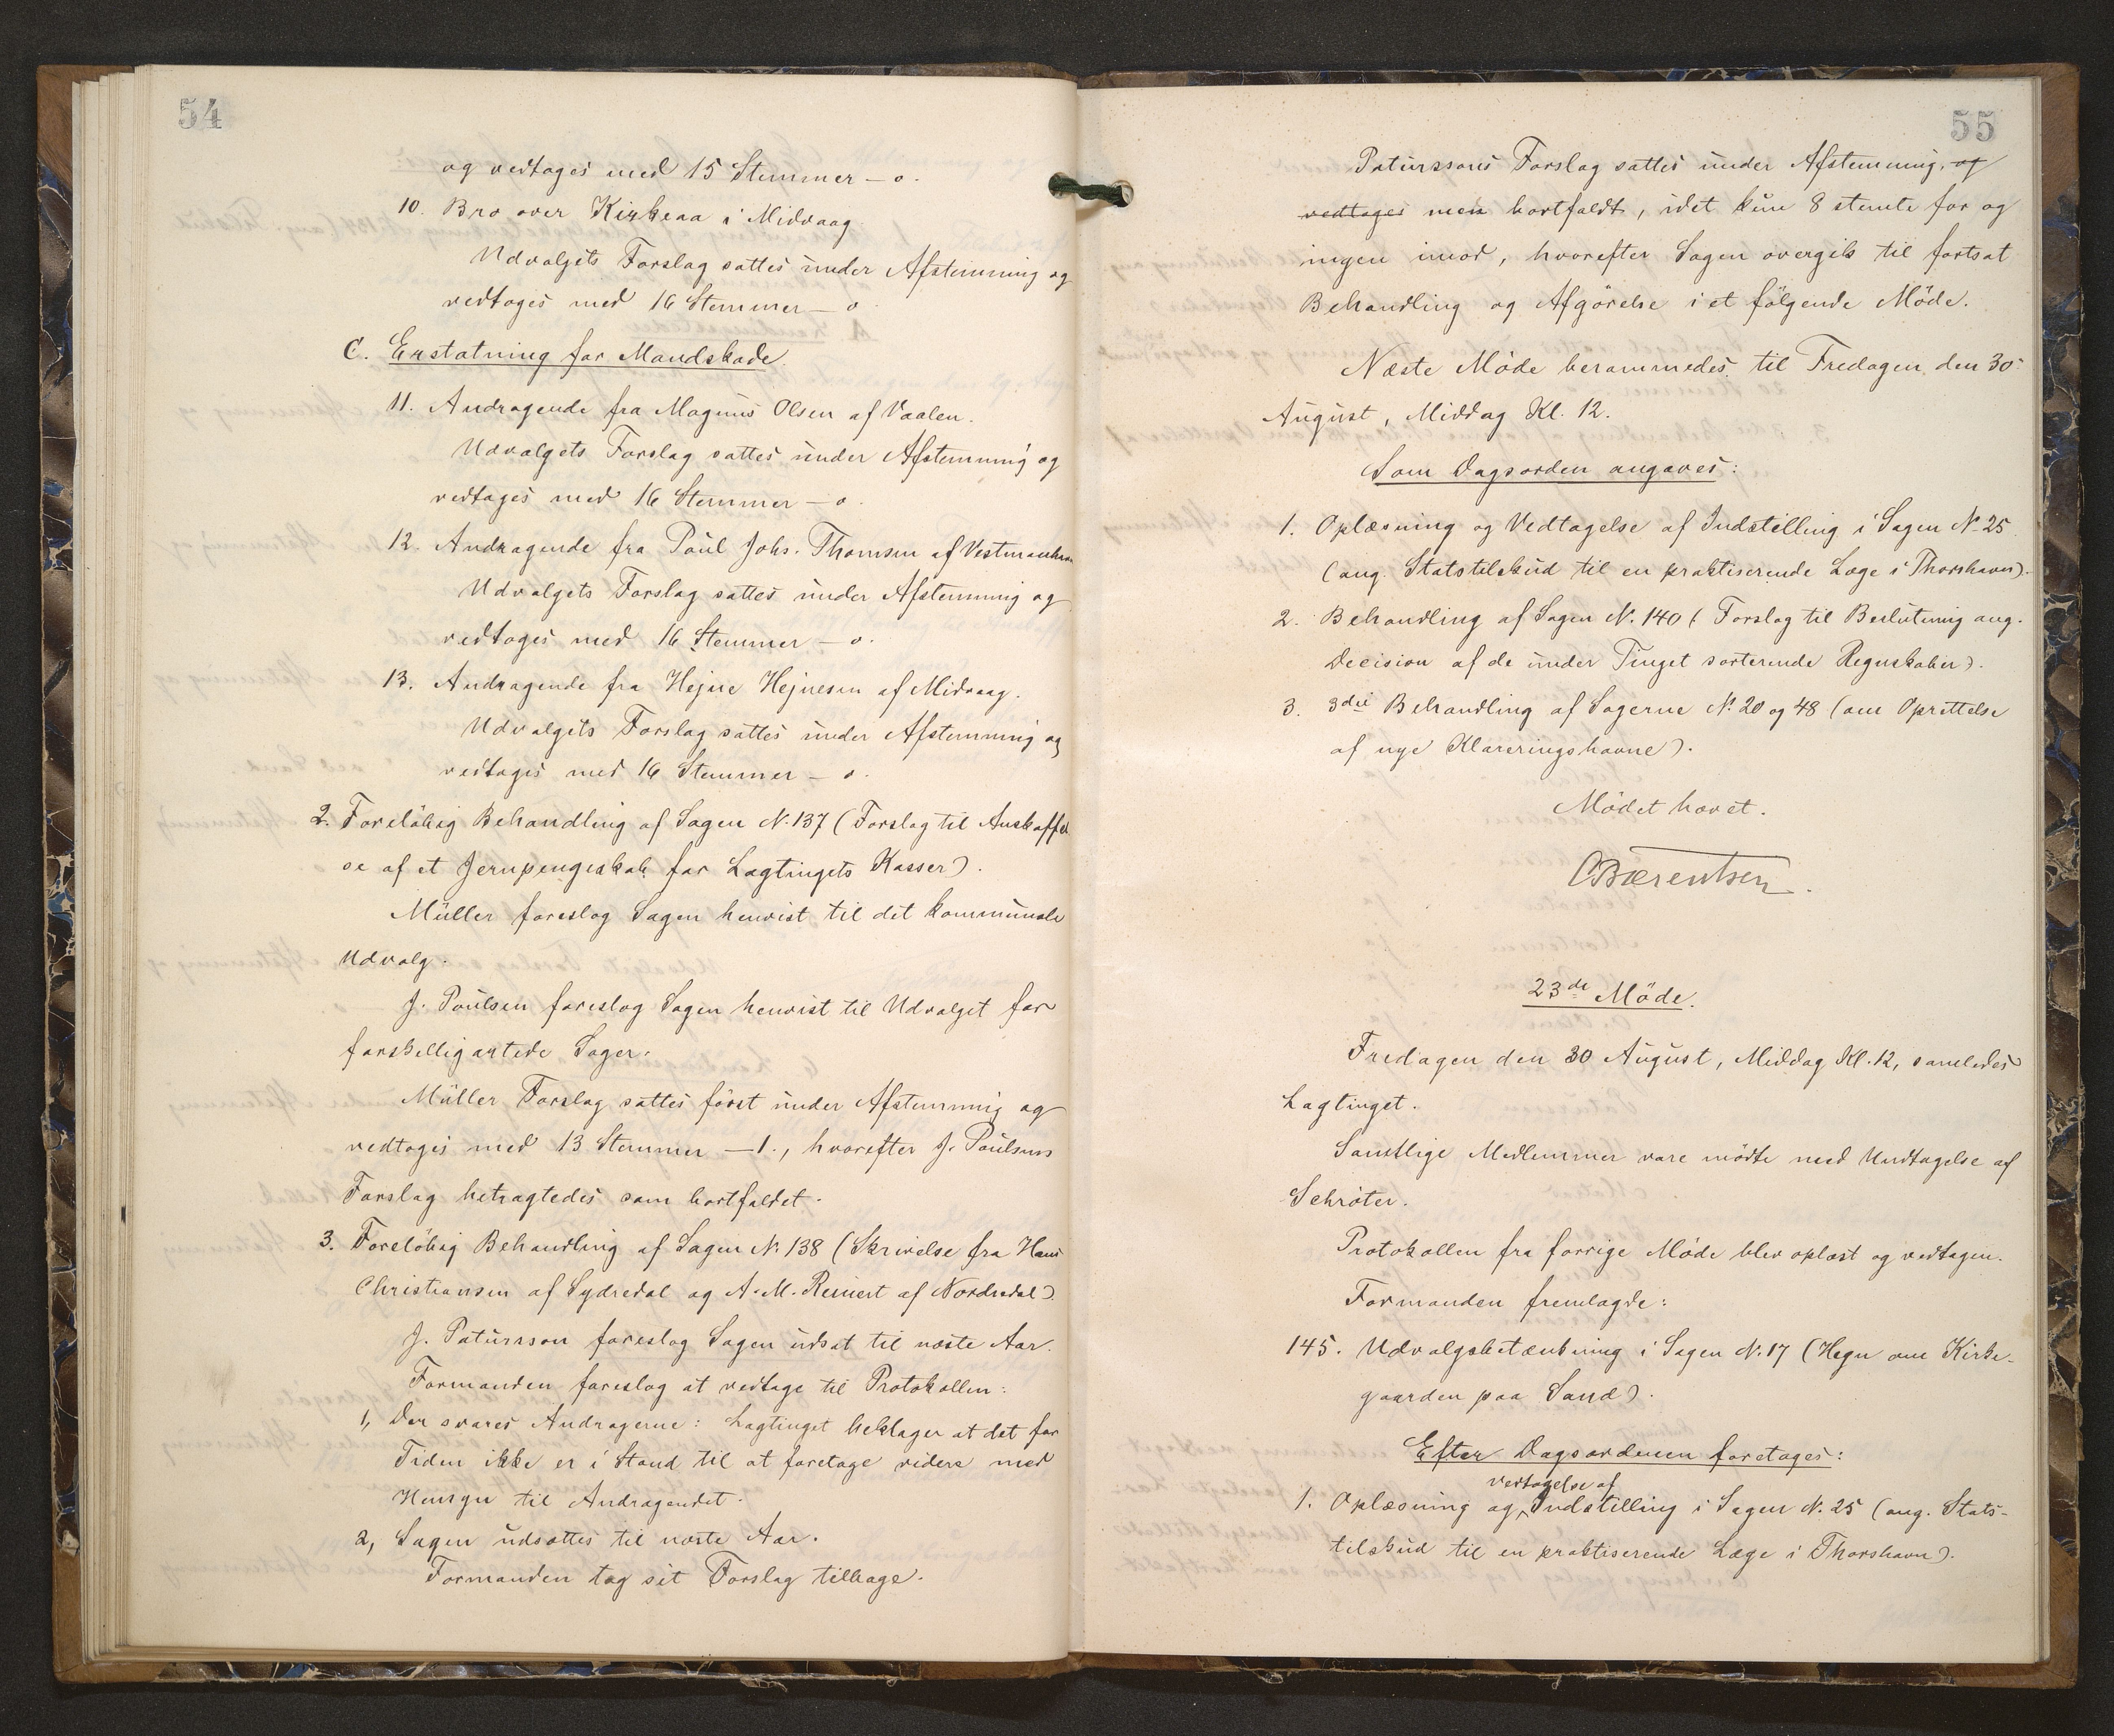 54
og vedtoges med 15 Stemmer – o.
10. Bro over Kirkeaa i Midvaag.
Udvalgets Forslag sattes under Afstemning og
vedtoges med 16 Stemmer – o.
C. Erstatning for Mandskade.
11. Andragende fra Magnus Olsen af Vaalen.
Udvalgets Forslag sattes under Afstemning og
vedtoges med 16 Stemmer – o.
12. Andragende fra Poul Johs. Thomsen af Vestmanhavn
Udvalgets Forslag sattes under Afstemning og
vedtoges med 16 Stemmer – o.
13. Andragende fra Hejne Hejnesen af Midvaag.
Udvalgets Forslag sattes under Afstemning og
vedtoges med 16 Stemmer – o.
2. Foreløbig Behandling af Sagen N. 137 (Forslag til Anskaffel
se af et Jernpengeskab for Lagtingets Kasser).
Müller foreslog Sagen henvist til det kommunale
Udvalg.
J. Poulsen foreslog Sagen henvist til Udvalget for
forskelligartede Sager.
Müller Forslag sattes først under Afstemning og
vedtoges med 13 Stemmer – 1., hvorefter J. Poulsens
Forslag betragtedes som bortfaldet.
3. Foreløbig Behandling af Sagen N. 138 (Skrivelse fra Hans
Christiansen af Sydredal og A. M. Reinert af Nordredal).
J. Patursson foreslog Sagen udsat til næste Aar.
Formanden foreslog at vedtage til Protokollen:
1, Der svares Andragerne: Lagtinget beklager at det for
Tiden ikke er i Stand til at foretage videre med
Hensyn til Andragendet.
2, Sagen udsættes til næste Aar.
Formanden tog sit Forslag tilbage.
55
Paturssons Forslag sattes under Afstemning, og
vedtoges men bortfaldt, idet kun 8 stemte for og
ingen imod, hvorefter Sagen overgik til fortsat
Behandling og Afgørelse i et følgende Møde.
Næste Møde berammedes til Fredagen den 30.
August, Middag Kl. 12.
Som Dagsorden angaves:
1. Oplæsning og Vedtagelse af Indstilling i Sagen N. 25
(ang. Statstilskud til en praktiserende Læge i Thorshavn).
2. Behandling af Sagen N. 140 (Forslag til Beslutning ang.
Decision af de under Tinget sorterende Regnskaber).
3. 3die Behandling af Sagerne N. 20 og 48 (om Oprettelse
af nye Klareringshavne).
Mødet hævet.
CBærentsen.
23de Møde.
Fredagen den 30 August, Middag Kl. 12, samledes
Lagtinget.
Samtlige Medlemmer vare mødte med Undtagelse af
Schrøter.
Protokollen fra forrige Møde blev oplæst og vedtagen.
Formanden fremlagde:
145. Udvalgsbetænkning i Sagen N. 17 (Hegn om Kirke-
gaarden paa Sand).
Efter Dagsordenen foretoges:
vedtagelse af
1. Oplæsning og Indstilling i Sagen N. 25 (ang. Stats-
tilskud til en praktiserende Læge i Thorshavn).